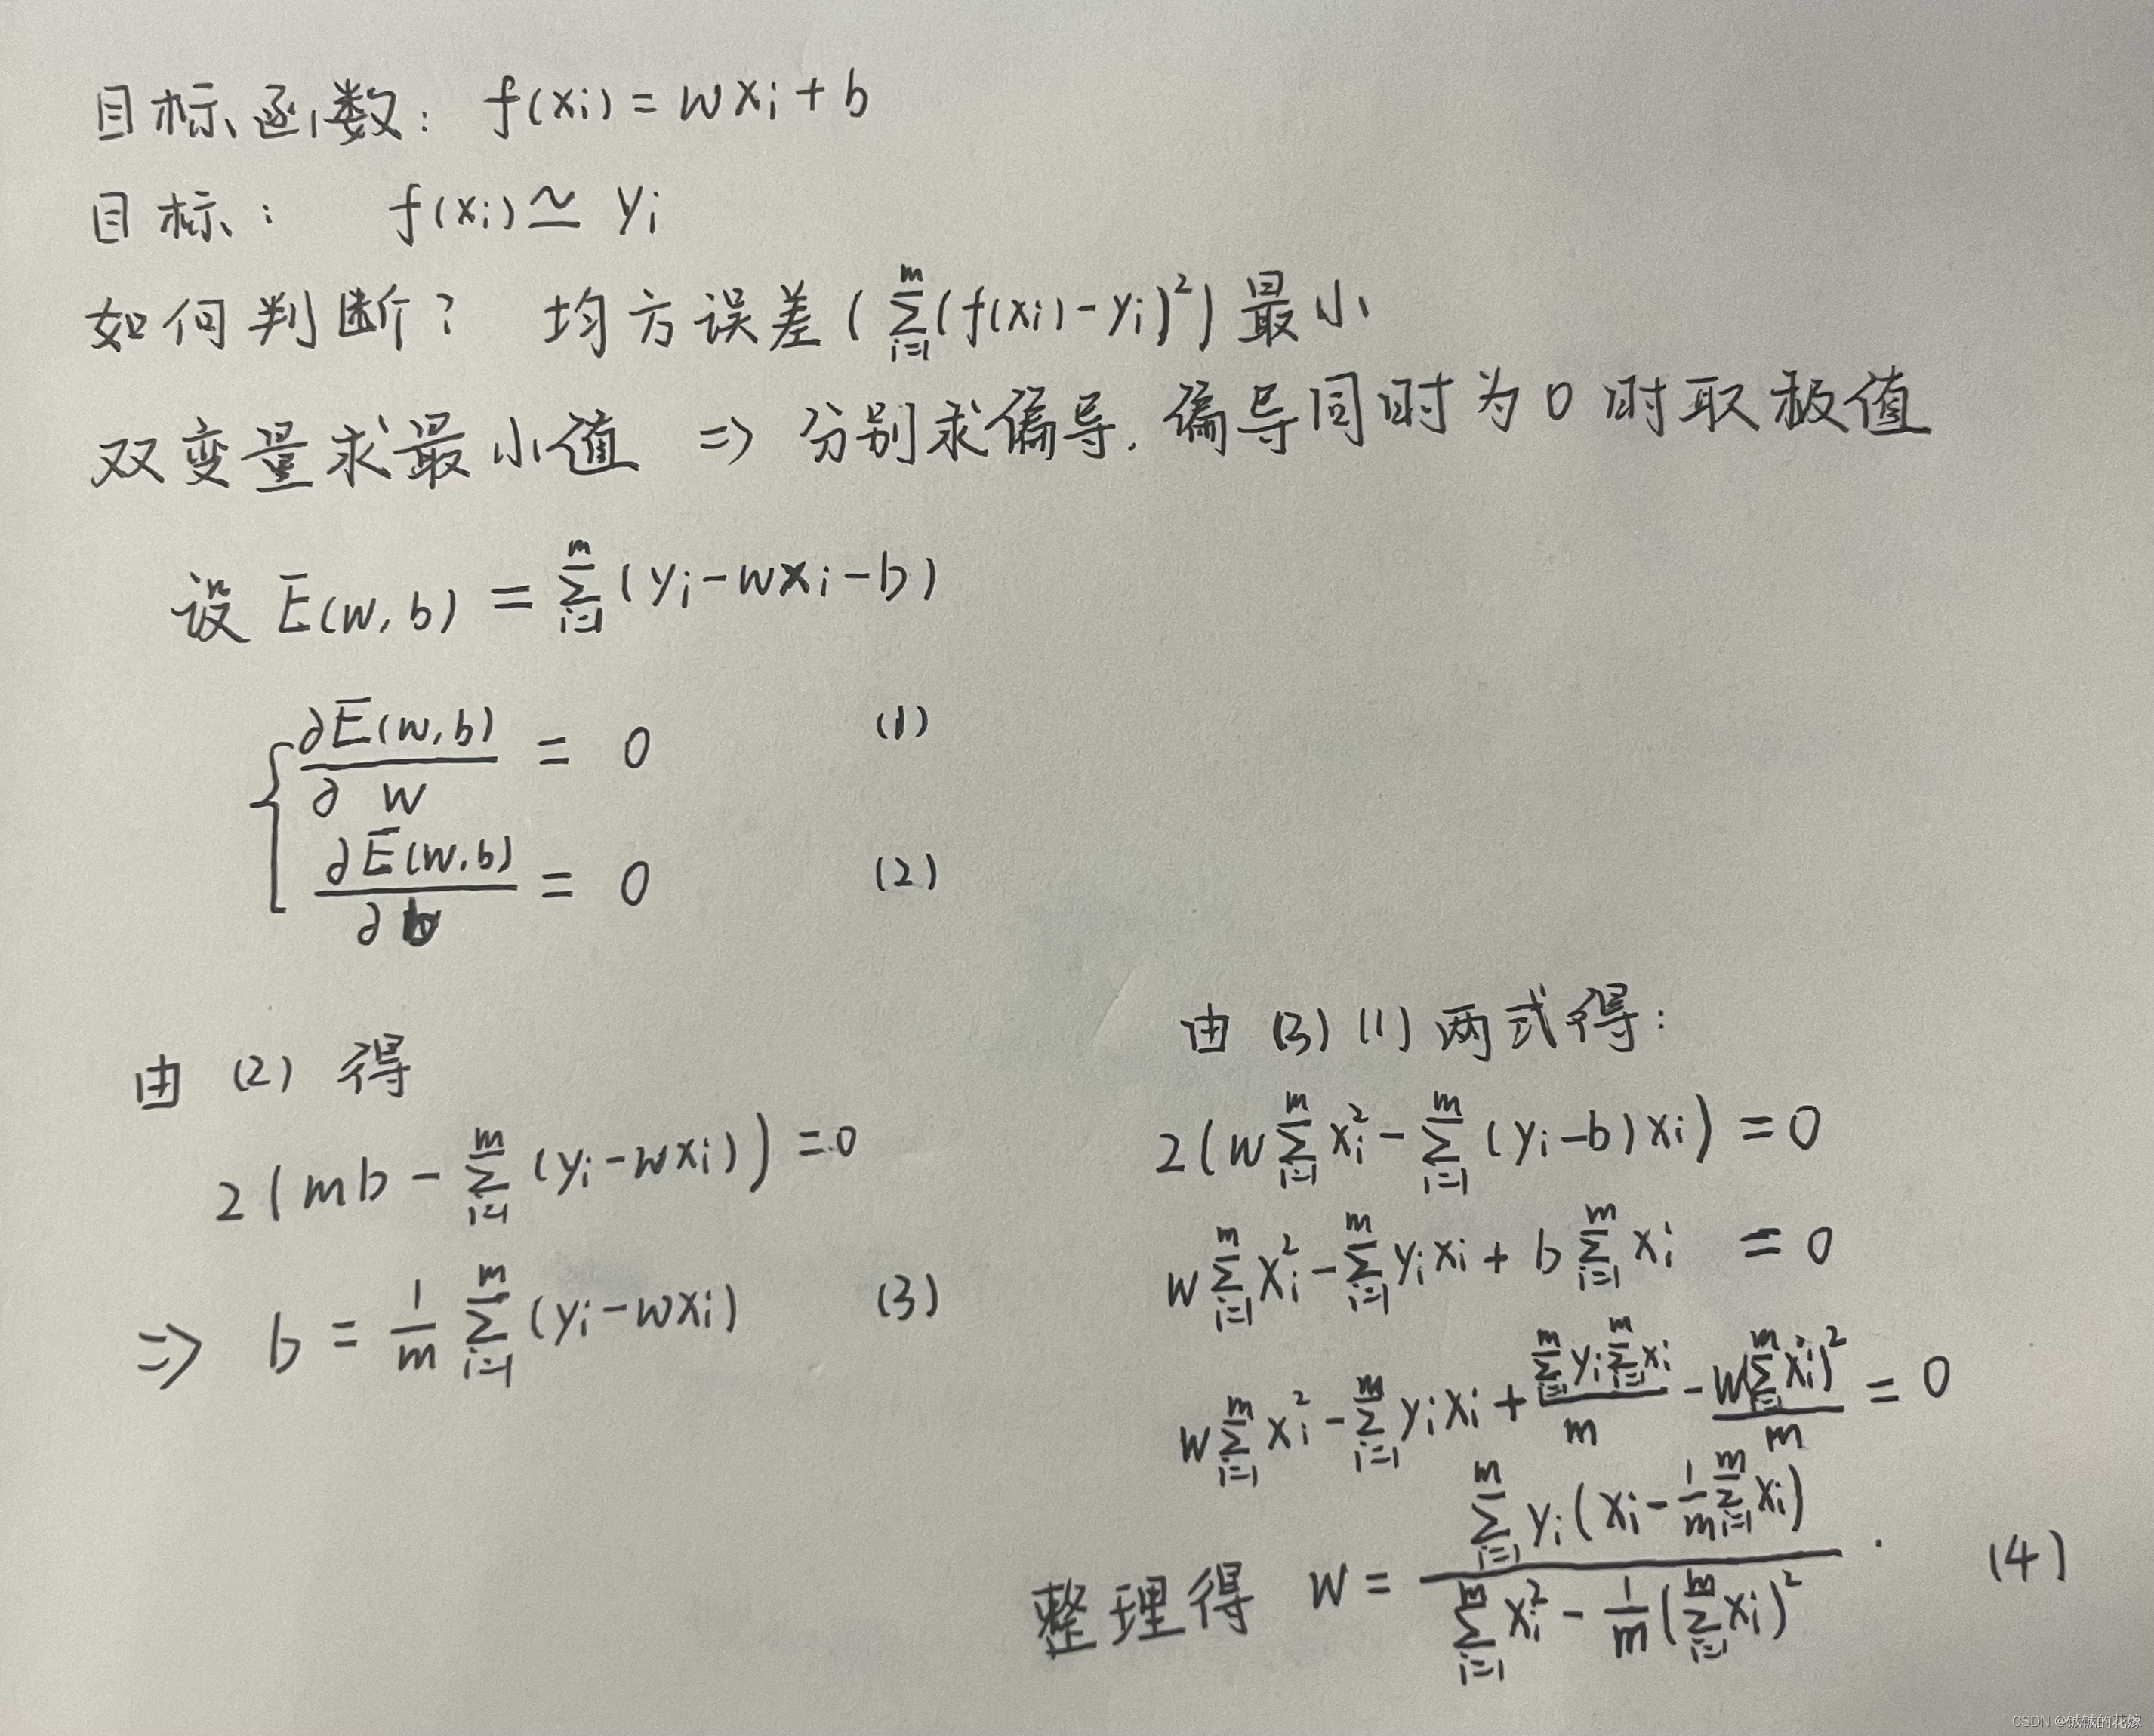 目标函数: f(xi) = wxi + b
目标: f(xi) ≃ yi
如何判断? 均方误差 ( ∑_{i=1}^{m} (f(xi) - yi)² ) 最小
双变量求最小值 => 分别求偏导. 偏导同时为0时取极值
设 E(w, b) = ∑_{i=1}^{m} (yi - wxi - b)
∂E(w,b)/∂w = 0 (1)
∂E(w,b)/∂b = 0 (2)
由 (2) 得
2(mb - ∑_{i=1}^{m} (yi - wxi)) = 0
=> b = 1/m ∑_{i=1}^{m} (yi - wxi) (3)
由 (3) (1) 两式得:
2(w ∑_{i=1}^{m} xi² - ∑_{i=1}^{m} (yi - b) xi) = 0
w ∑_{i=1}^{m} xi² - ∑_{i=1}^{m} yi xi + b ∑_{i=1}^{m} xi = 0
w ∑_{i=1}^{m} xi² - ∑_{i=1}^{m} yi xi + (∑_{i=1}^{m} yi ∑_{i=1}^{m} xi)/m - w(∑_{i=1}^{m} xi)²/m = 0
整理得 w = (∑_{i=1}^{m} yi (xi - 1/m ∑_{i=1}^{m} xi)) / (∑_{i=1}^{m} xi² - 1/m (∑_{i=1}^{m} xi)²) . (4)
CSDN @铖铖的花嫁